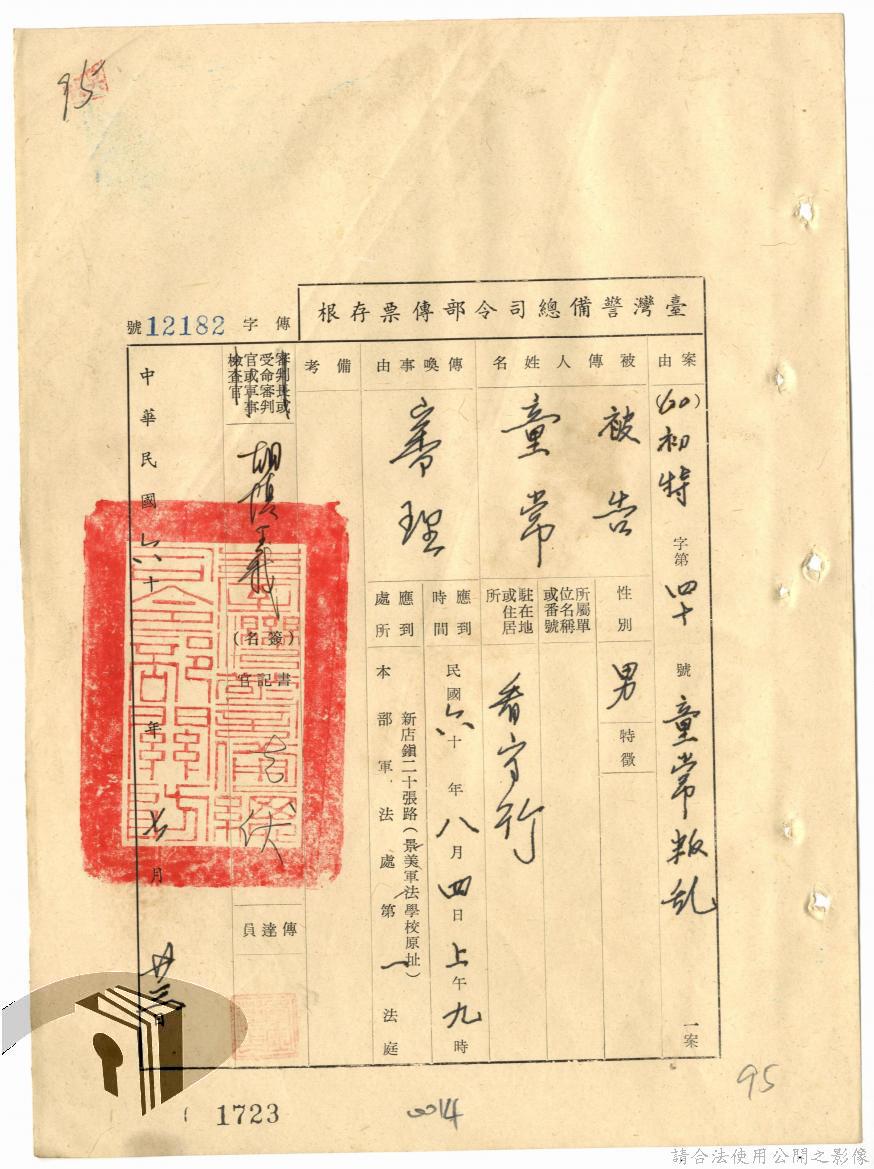 95
臺灣警備總司令部傳票存根
傳字
12182號
案由
(60)初特字第四十號童常叛乱一案
被傳人姓名
被告
童常
性別
男
特徵
所屬單位名稱或番號
駐在地或住居所
看守所
傳喚事由
審理
應到時間
民國六十年八月四日上午九時
應到處所
新店鎮二十張路(景美軍法學校原址)
本部軍法處第一法庭
備考
審判長或受命審判官或軍事檢查官
(簽名)
書記官
傳達員
中華民國六十年七月廿三日
1723
0014
95
請合法使用公開之影像